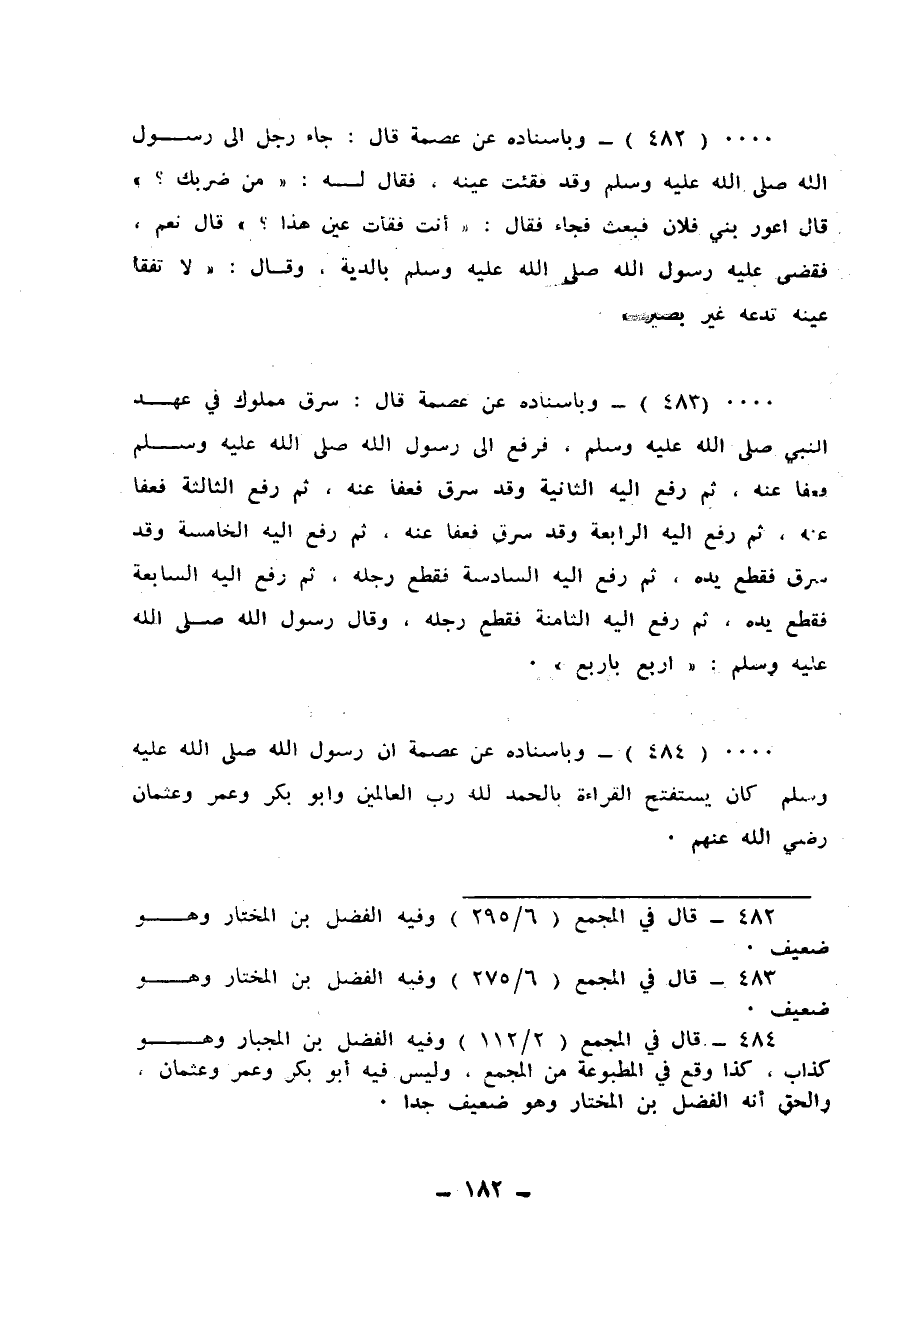 ٠٠٠٠ ( ٤٨٢ ) ــ وباسناده عن عصمة قال : جاء رجل الى رســـول
الله صلى الله عليه وسلم وقد فقئت عينه ، فقال لـــه : « من ضربك ؟ »
قال اعور بني فلان فبعث فجاء فقال : « أنت فقأت عين هذا ؟ » قال نعم ،
فقضى عليه رسول الله صلى الله عليه وسلم بالدية ، وقـال : « لا تفقأ
عينه تدعه غير بصير»
٠٠٠٠ (٤٨٣ ) ــ وباسناده عن عصمة قال : سرق مملوك في عهـــد
النبي صلى الله عليه وسلم ، فرفع الى رسول الله صلى الله عليه وســلم
فعفا عنه ، ثم رفع اليه الثانية وقد سرق فعفا عنه ، ثم رفع الثالثة فعفا
عنه ، ثم رفع اليه الرابعة وقد سرق فعفا عنه ، ثم رفع اليه الخامسة وقد
سرق فقطع يده ، ثم رفع اليه السادسة فقطع رجله ، ثم رفع اليه السابعة
فقطع يده ، ثم رفع اليه الثامنة فقطع رجله ، وقال رسول الله صــلى الله
عليه وسلم : « اربع باربع » ٠
٠٠٠٠ ( ٤٨٤ ) ــ وباسناده عن عصمة ان رسول الله صلى الله عليه
وسلم كان يستفتح القراءة بالحمد لله رب العالمين وابو بكر وعمر وعثمان
رضي الله عنهم ٠
٤٨٢ ــ قال في المجمع ( ٢٩٥/٦ ) وفيه الفضل بن المختار وهـــو
ضعيف ٠
٤٨٣ ــ قال في المجمع ( ٢٧٥/٦ ) وفيه الفضل بن المختار وهـــو
ضعيف ٠
٤٨٤ ــ قال في المجمع ( ١١٢/٢ ) وفيه الفضل بن المجبار وهـــو
كذاب ، كذا وقع في المطبوعة من المجمع ، وليس فيه أبو بكر وعمر وعثمان ،
والحق أنه الفضل بن المختار وهو ضعيف جدا ٠
ــ ١٨٢ ــ